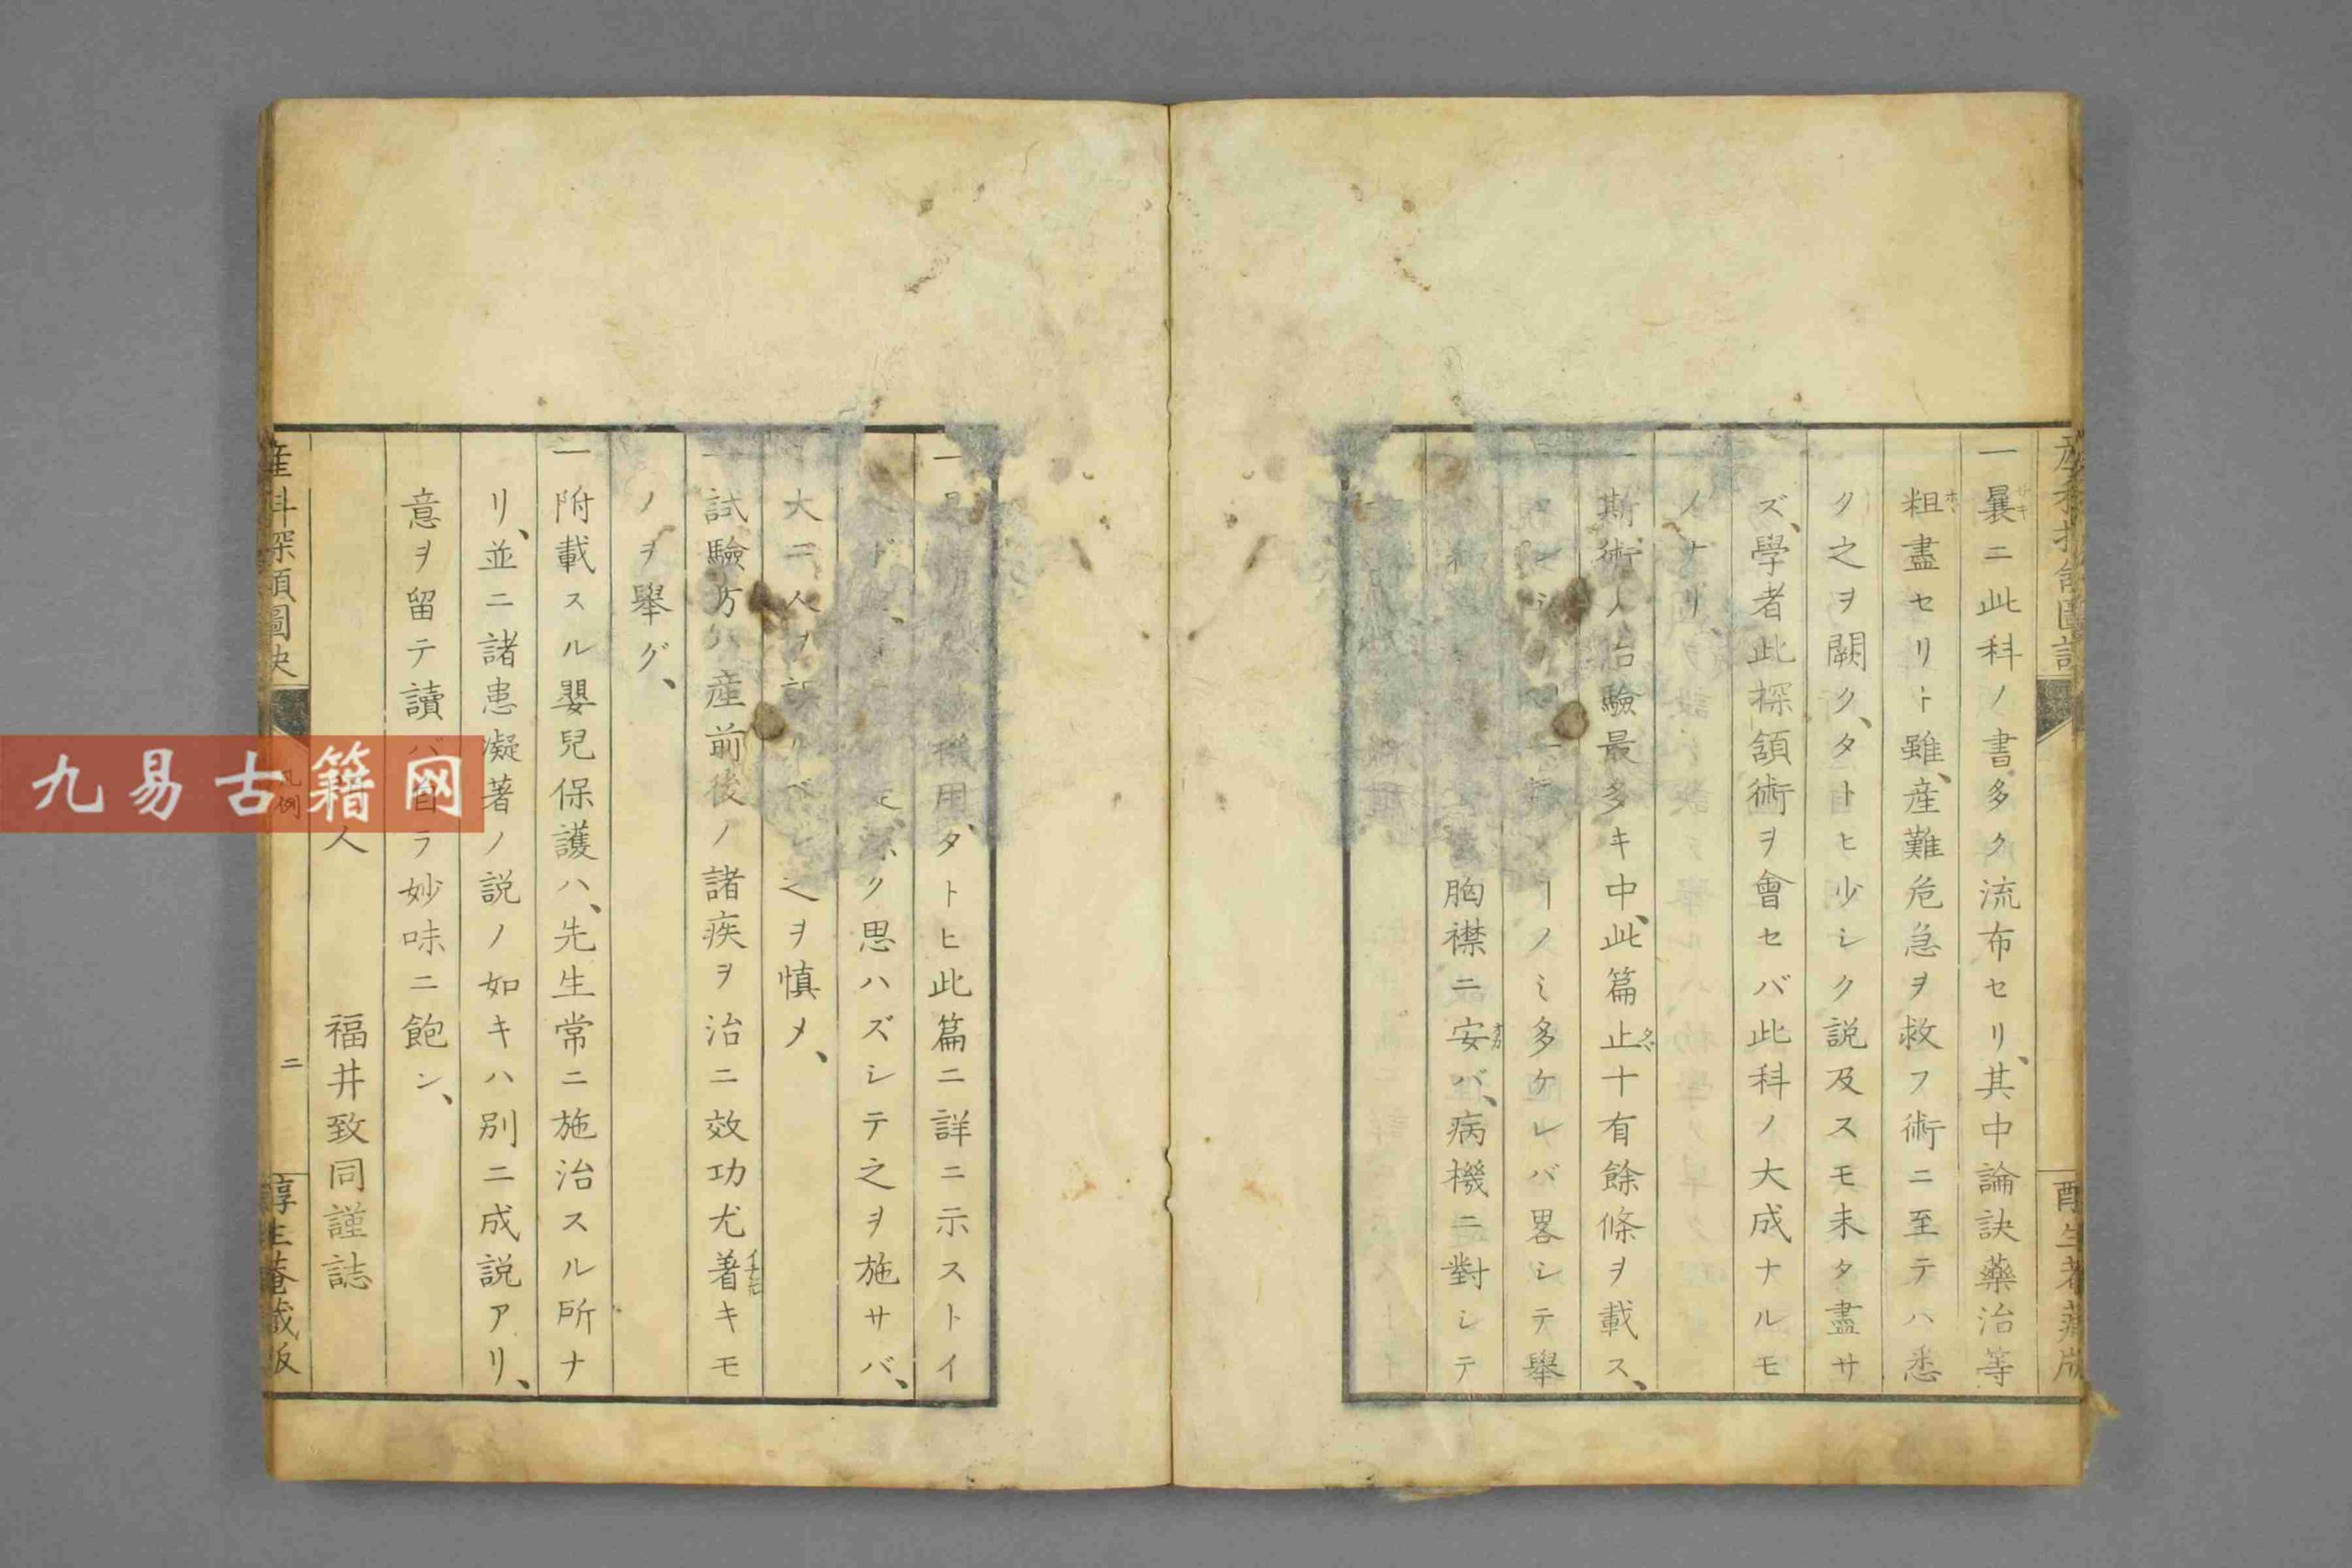 一曩ニ此科ノ書多ク流布セリ、其中論訣藥治等
粗盡セリト雖、産難危急ヲ救フ術ニ至テハ悉
ク之ヲ闕ク、タトヒ少シク説及スモ未タ盡サ
ズ、學者此探頷術ヲ會セバ此科ノ大成ナルモ
ノナリ、
斯術ノ治驗最多キ中、此篇止十有餘條ヲ載ス、
ノミ多ケレバ畧シテ舉
胸襟ニ安バ、病機ニ對シテ
用、タトヒ此篇ニ詳ニ示ストイ
ク思ハズシテ之ヲ施サバ、
大ニ人ヲ誤ルベシ之ヲ慎メ、
一試驗方ハ産前後ノ諸疾ヲ治ニ效功尤著キモ
ノヲ舉グ、
一附載スル嬰兒保護ハ、先生常ニ施治スル所ナ
リ、並ニ諸患凝著ノ説ノ如キハ別ニ成説アリ、
意ヲ留テ讀バ自ラ妙味ニ飽ン、
人 福井致同謹誌
産科探頷圖訣
凡例
二
醇生菴藏版
九易古籍网